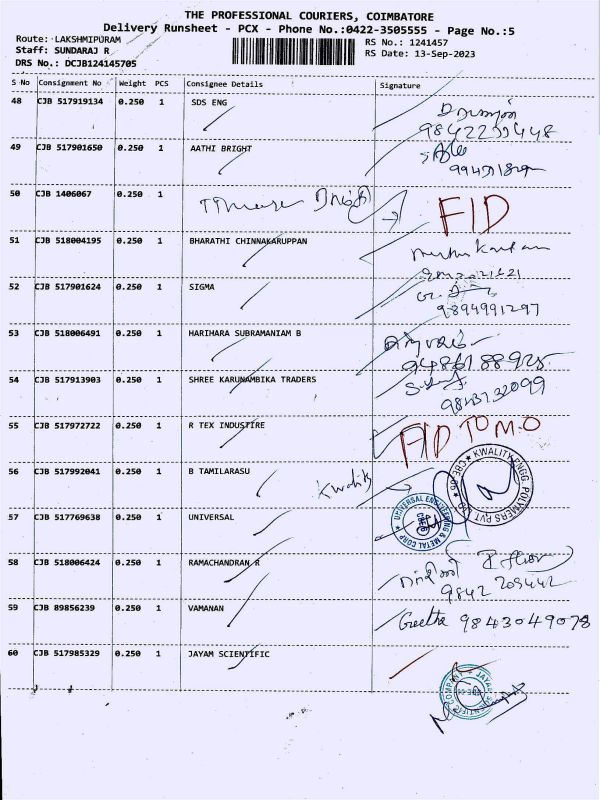 THE PROFESSIONAL COURIERS, COIMBATORE
Delivery Runsheet - PCX - Phone No.:0422-3505555 - Page No.:5
Route: LAKSHMIPURAM
RS No.: 1241457
Staff: SUNDARAJ R
RS Date: 13-Sep-2023
DRS No.: DCJB124145705
S No Consignment No Weight PCS Consignee Details Signature
48 CJB 517919134 0.250 1 SDS ENG
49 CJB 517901650 0.250 1 AATHI BRIGHT
50 CJB 1406067 0.250 1 FID
51 CJB 518004195 0.250 1 BHARATHI CHINNAKARUPPAN
52 CJB 517901624 0.250 1 SIGMA
9894991297
53 CJB 518006491 0.250 1 HARIHARA SUBRAMANIAM B
54 CJB 517913903 0.250 1 SHREE KARUNAMBIKA TRADERS
9843732099
55 CJB 517972722 0.250 1 R TEX INDUSTIRE FID TO M.O
56 CJB 517992041 0.250 1 B TAMILARASU Kwality
KWALITY ENGG. POLYMERS PVT
57 CJB 517769638 0.250 1 UNIVERSAL
UNIVERSAL ENGINEERING & METAL CORP
58 CJB 518006424 0.250 1 RAMACHANDRAN R
9842 205442
59 CJB 89856239 0.250 1 VAMANAN Geetha 9843049078
60 CJB 517985329 0.250 1 JAYAM SCIENTIFIC
JAYAM SCIENTIFIC COMPANY